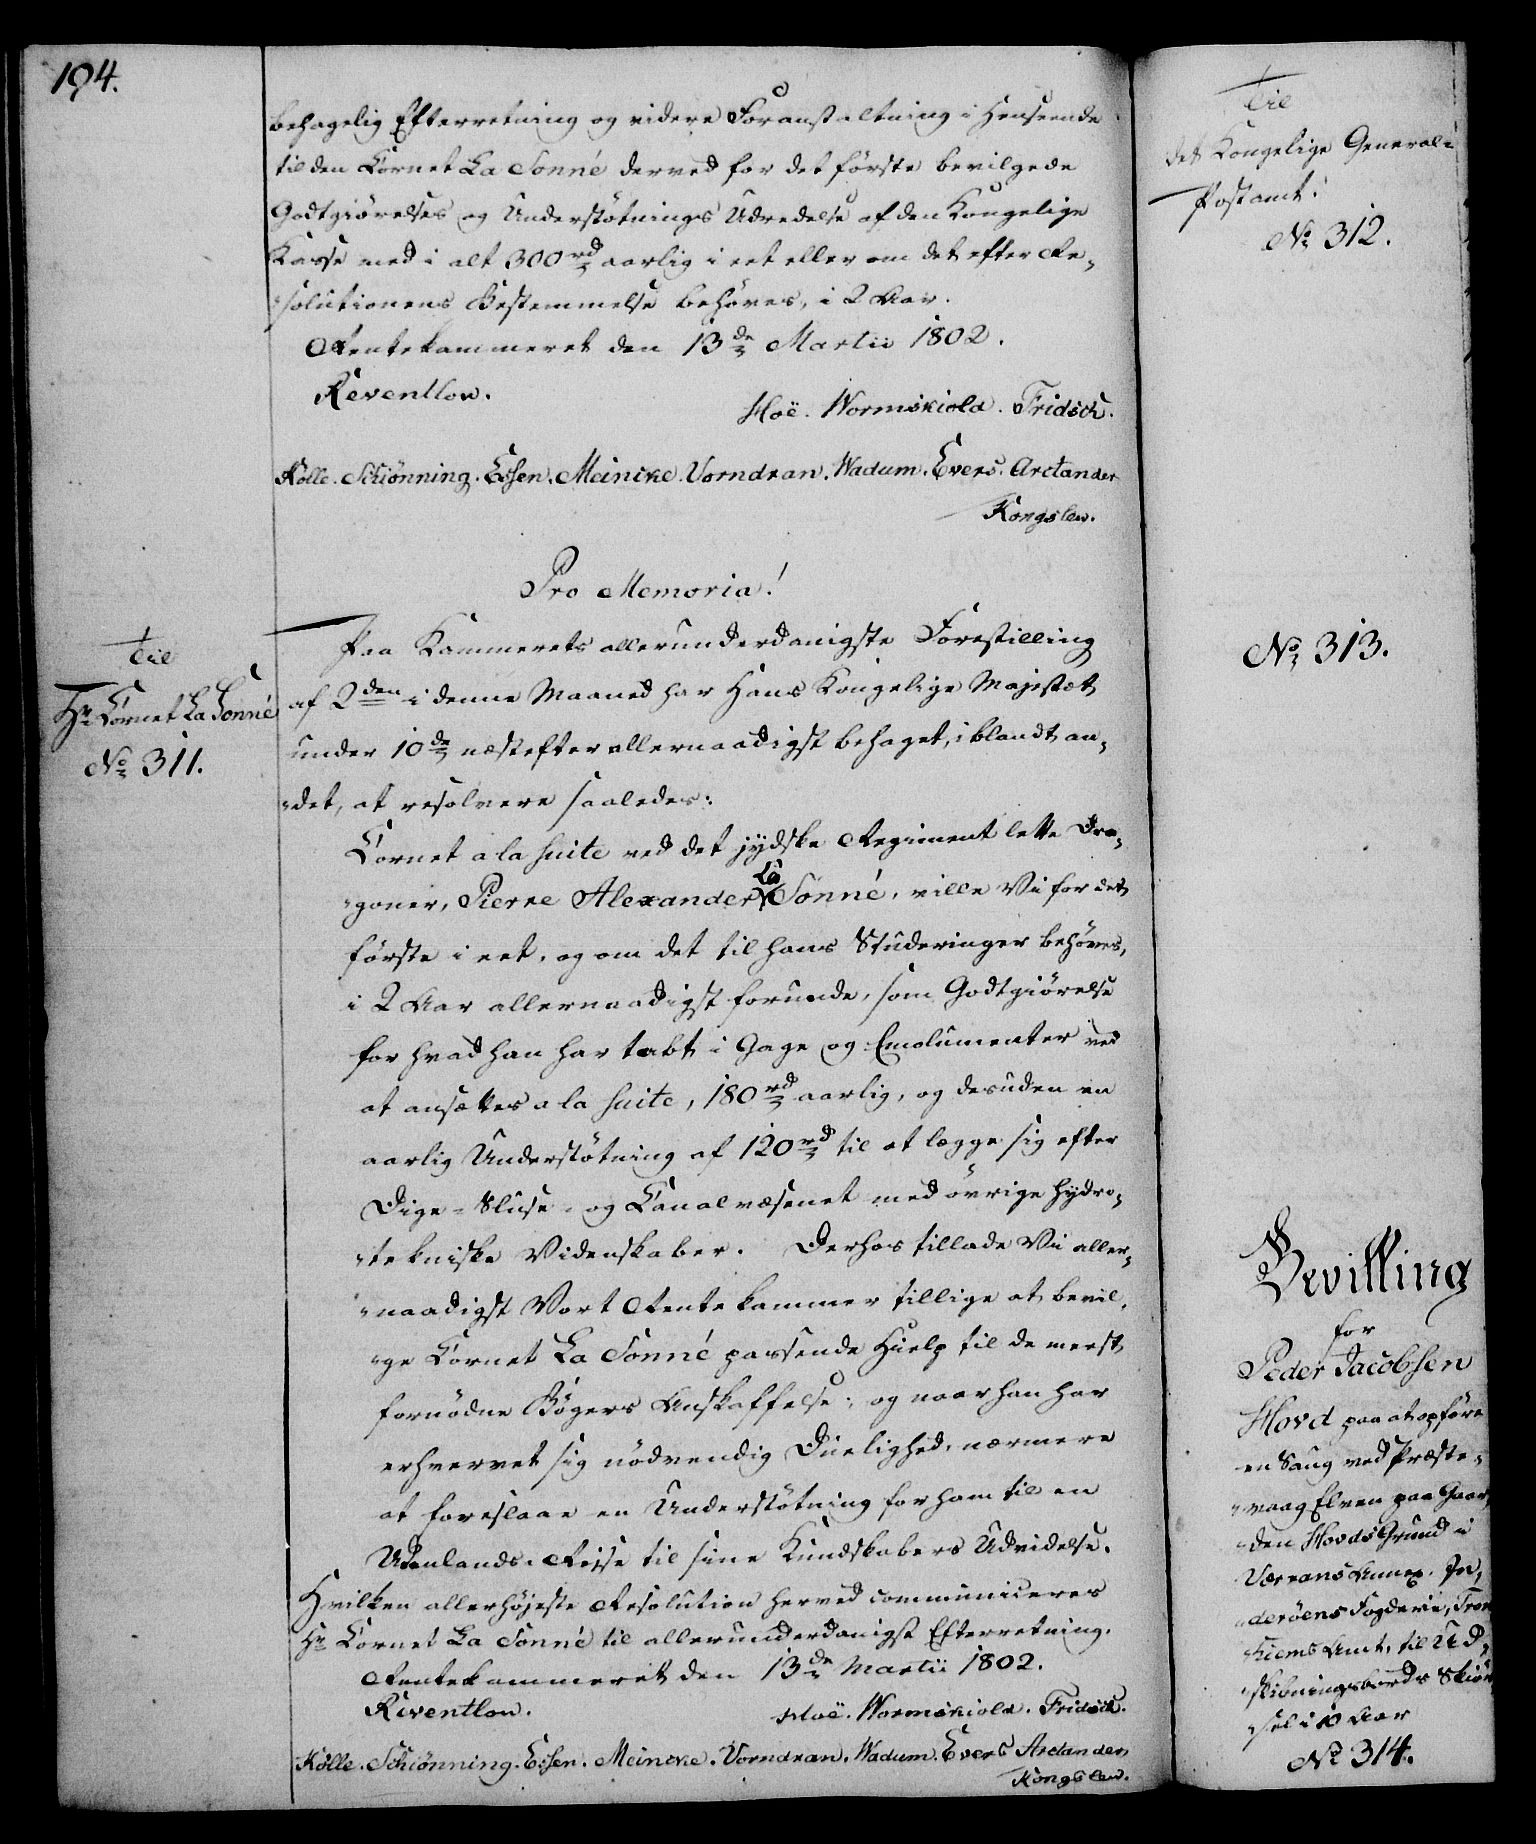 194.
behagelig Efterretning og videre Foranstaltning i Henseende
til den Cornet La Sonné derved for det förste bevilgede
Godtgiörelses og Understötnings Udredelse af den Kongelige
Kasse med i alt 300 rd aarlig i eet eller om det efter Re-
solutionens Bestemmelse behöves, i 2 Aar.
Rentekammeret den 13de Martii 1802.
Reventlow.
Hoë. Wormskiold. Fridsch.
Kölle. Schiönning. Essen. Meincke. Vorndran. Wadum. Evers. Arctander
Kongslew.
Pro Memoria!
Til
Hr Cornet La Sonné
No 311.
Paa Kammerets allerunderdanigste Forestilling
af 2den i denne Maaned har Hans Kongelige Majestæt
under 10de næstefter allernaadigst behaget, iblandt an-
det, at resolvere saaledes:
Cornet a la suite ved det jydske Regiment lette Dra-
goner, Pierre Alexander La Sonné, ville Vi for det
förste i eet, og om det til hans Studeringer behöves,
i 2 Aar allernaadigst forunde, som Godtgiörelse
for hvad han har tabt i Gage og Emolumenter ved
at ansættes a la suite, 180 rd aarlig, og desuden en
aarlig Understötning af 120 rd til at lægge sig efter
Dige- Sluse- og Canalvæsenet med övrige hydro-
tekniske Videnskaber. Derhos tillade Vi aller-
naadigst Vort Rentekammer tillige at bevil-
ge Cornet La Sonné passende Hielp til de meest
fornödne Bögers Anskaffelse; og naar han har
erhvervet sig nödvendig Duelighed, nærmere
at foreslaae en Understötning for ham til en
Udenlands-Reise til sine Kundskabers Udvidelse.
Hvilken allerhöjeste Resolution herved communiceres
Hr Cornet La Sonné til allerunderdanigst Efterretning.
Rentekammeret den 13de Martii 1802.
Reventlow.
Hoë. Wormskiold. Fridsch.
Kölle. Schiönning. Essen. Meincke. Vorndran. Wadum. Evers Arctander
Kongslew.
Til
det Kongelige General-
Postamt.
No 312.
No 313.
Bevilling
for
Peder Jacobsen
Hovd paa at opföre
en Saug ved Præste-
vaag Elven paa Gaar-
den Hovds Grund i
Værrans Annex. In-
deröens Fogderie, Tron
hiems Amt, til Ud-
skibningsbords Skiör
sel i 10 Aar
No 314.